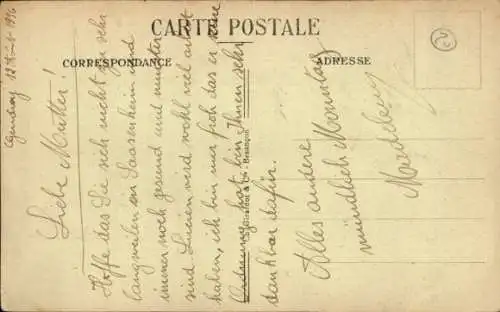 CARTE POSTALE
CORRESPONDANCE
ADRESSE
12 1916
Liebe Mutter!
Hoffe das Sie sich nicht zu sehr
langweilen in Saasenheim und
immer noch gesund und munter
sind. Lucien wird wohl viel arbeit
haben, ich bin nur froh das er seine
Ordnung hat bin Ihnen sehr
dankbar dafür.
Alles andere
mündlich Donnerstag